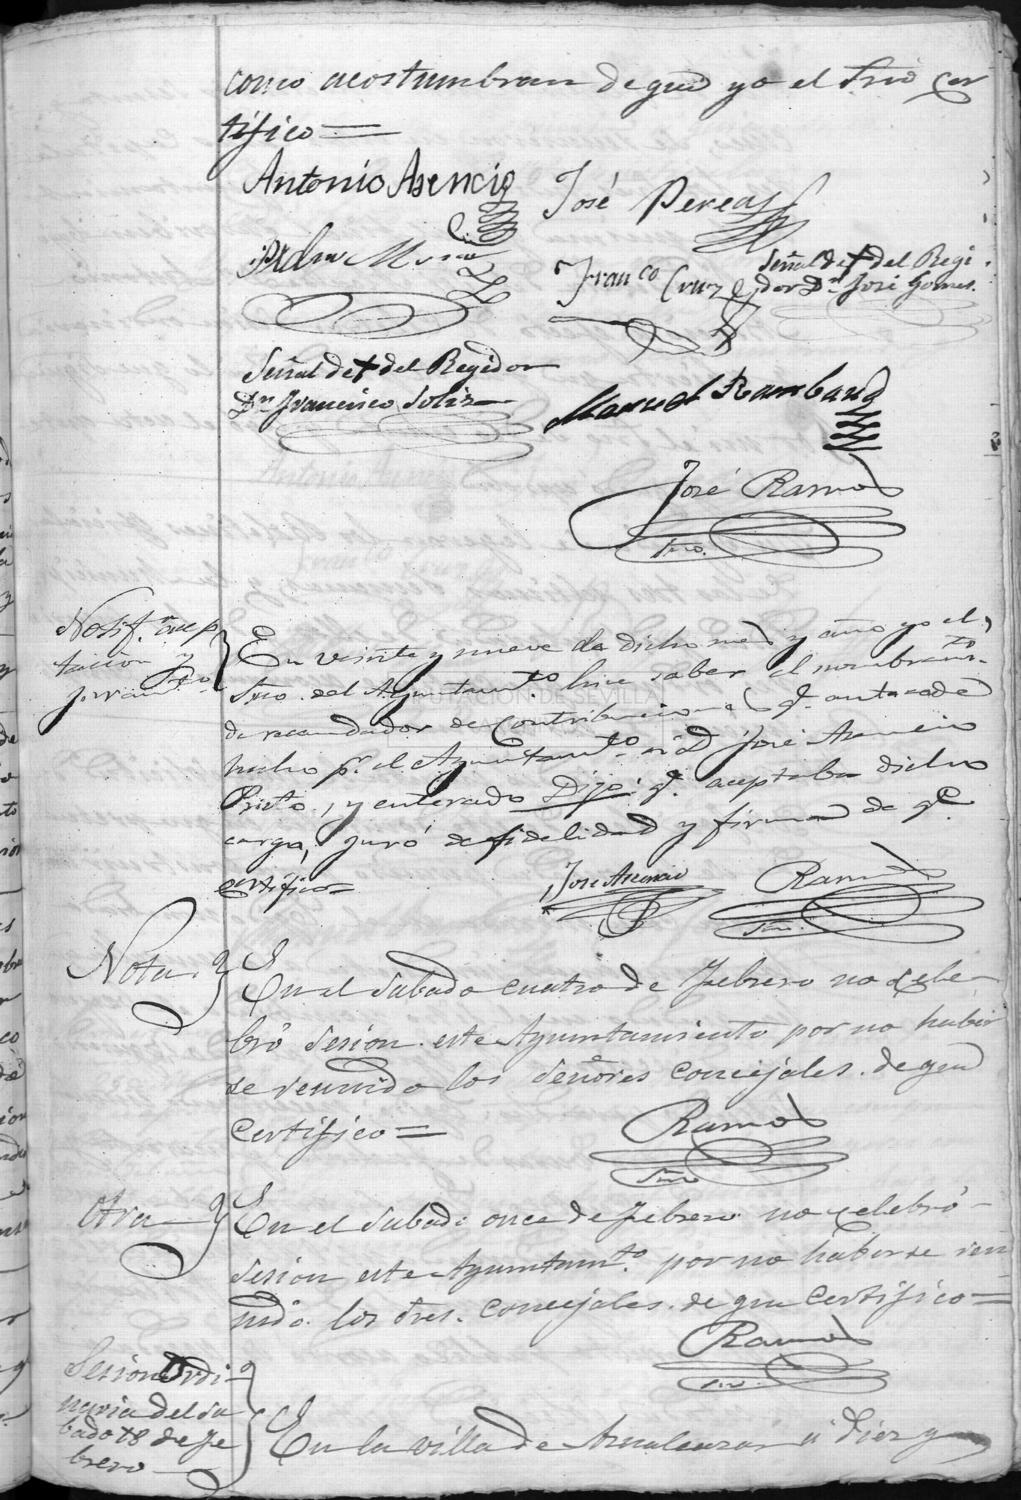 como acostumbran de que yo el Srio cer
tifico=
Antonio Asencio
José Pereas
Pedro Mora
Franco Cruz
Señal de + del Regi
dor Dn José Gomes.
Señal de + del Regidor
Dn Francisco Solis
Manuel Rambaud
José Ramos
Srio.
Notifn acep
tacion y
juramto
En veinte y nueve de dicho mes y año yo el
Srio. del Ayuntamto hice saber el nombramto.
de recaudador de Contribuciones q. antecede
hecho pr. el Ayuntamto á D José Asencio
Prieto, y enterado Dijo: q. aceptaba dicho
cargo, juró de fidelidad y firma de qe
certifico=
José Asencio
Ramos
Srio.
Nota.
En el Sabado cuatro de Febrero no cele-
bró Sesion este Ayuntamiento por no haber
se reunido los Señores Concejales. de que
Certifico=
Ramos
Srio
Otra
En el Sabado once de Febrero no celebró
Sesion este Ayuntamto. por no haberse reu
nido los Sres. Concejales. de que Certifico=
Ramos
Srio.
Sesion Ordi-
naria del Sa
bado 18 de Fe
brero
En la villa de Aznalcazar á diez y
DIPUTACION DE SEVILLA